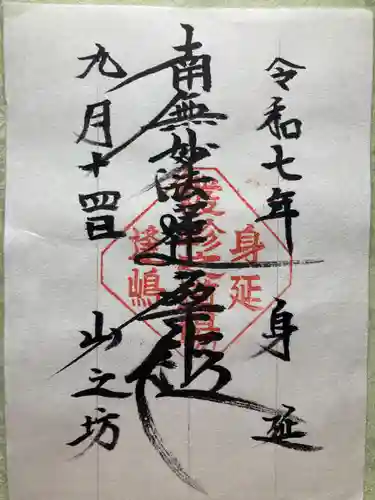 令和七年 身延
南無妙法蓮華経
九月十四日 山之坊
身延